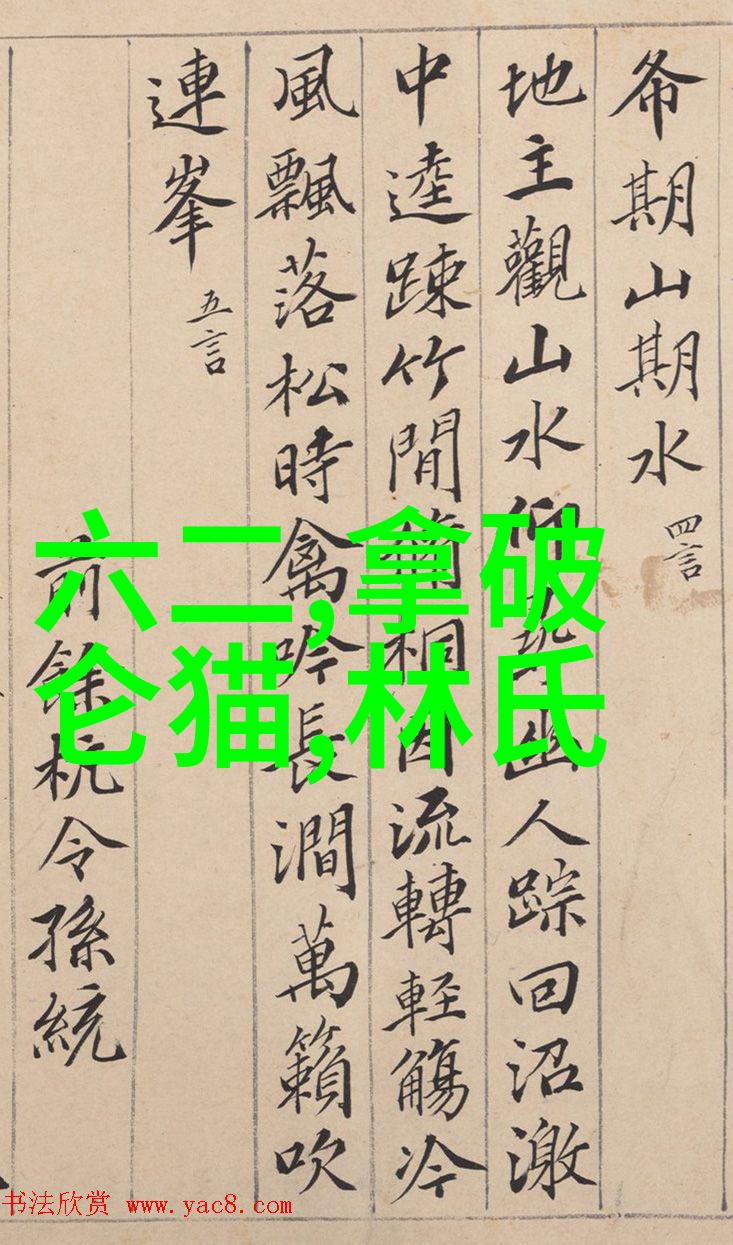 希期山期水 四言
地主觀山水仰尋幽人踪回沼激
中逵踈竹間脩桐因流轉軽觴冷
風飄落松時禽吟長澗萬籟吹
連峯 五言
前餘杭令孫統
六二,拿破
仑猫,林氏
书法欣赏 www.yac8.com